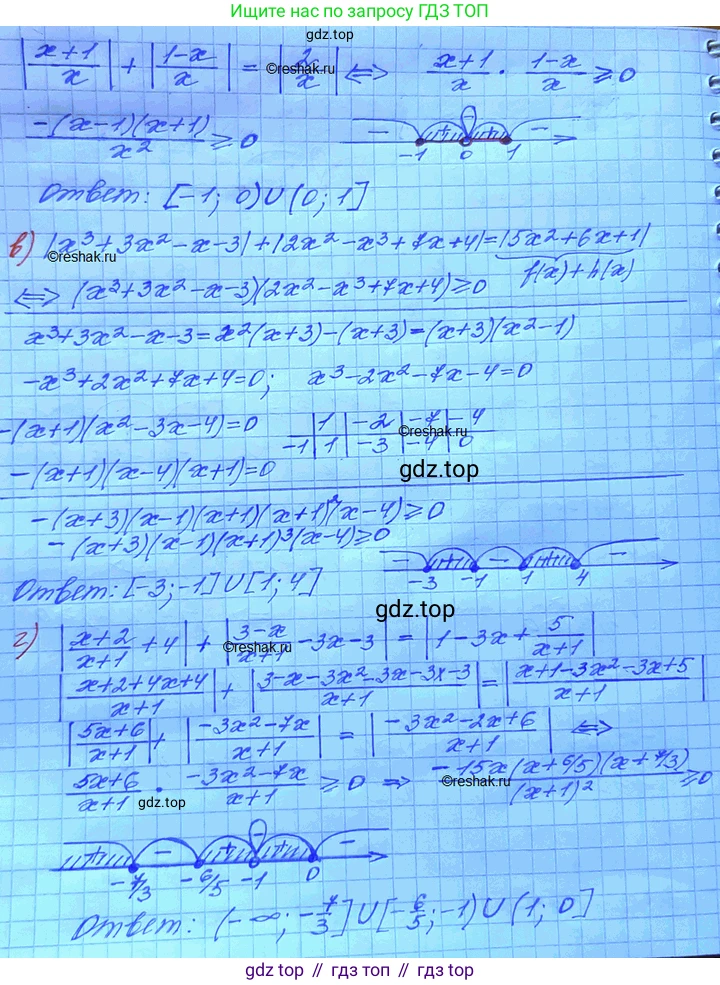 Ищите нас по запросу ГДЗ ТОП
|x+1/x| + |1-x/x| = |2/x| ⟺ x+1/x · 1-x/x ≥ 0
©reshak.ru
-(x-1)(x+1)/x² ≥ 0
- + + -
-1 0 1
Ответ: [-1; 0)∪(0; 1]
в) |x³+3x²-x-3|+|2x²-x³+7x+4|=|5x²+6x+1|
©reshak.ru
f(x)+h(x)
⟺ (x³+3x²-x-3)(2x²-x³+7x+4)≥0
x³+3x²-x-3=x²(x+3)-(x+3)=(x+3)(x²-1)
-x³+2x²+7x+4=0; x³-2x²-7x-4=0
-(x+1)(x²-3x-4)=0
1 -2 -7 -4
-1 1 -3 -4 0
©reshak.ru
-(x+1)(x-4)(x+1)=0
gdz.top
-(x+3)(x-1)(x+1)(x+1)²(x-4)≥0
-(x+3)(x-1)(x+1)³(x-4)≥0
- + - + -
-3 -1 1 4
Ответ: [-3;-1]∪[1;4]
gdz.top
г) |x+2/x+1 + 4| + |3-x/x+1 - 3x-3| = |1-3x+ 5/x+1|
©reshak.ru
|x+2+4x+4/x+1| + |3-x-3x²-3x-3x-3/x+1| = |x+1-3x²-3x+5/x+1|
|5x+6/x+1| + |-3x²-7x/x+1| = |-3x²-2x+6/x+1| ⟺
5x+6/x+1 · -3x²-7x/x+1 ≥ 0 ⇒ -15x(x+6/5)(x+7/3)/(x+1)² ≥0
©reshak.ru
gdz.top
+ - + - + -
-7/3 -6/5 -1 0
Ответ: (-∞; -7/3]∪[-6/5;-1)∪(1; 0]
gdz.top // гдз.топ // gdz.top // гдз.топ